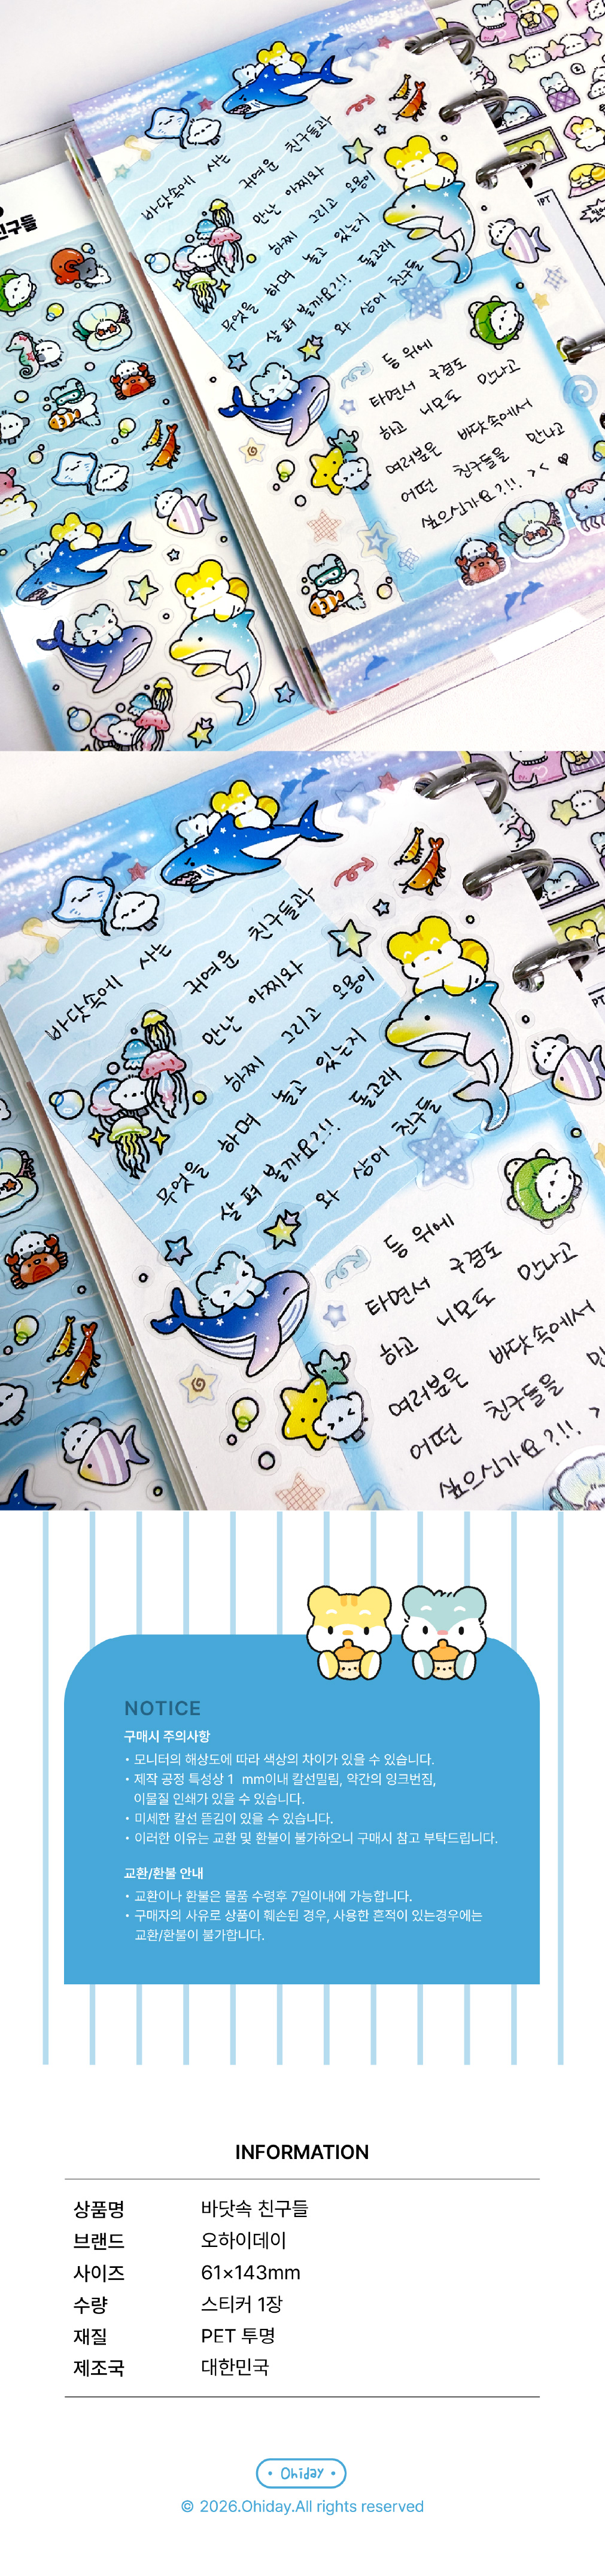 친구들
바닷속에 사는
귀여운 친구들과
만난 아찌와
하찌 그리고 오몽이
무엇을 하며 놀고 있는지
살펴 볼까요?!! 돌고래
와 상어 친구들
등 위에
타면서 구경도
하고 니모도 만나고
여러분은 바닷속에서
어떤 친구들을 만나고
싶으신가요?!!. > <
PT
바닷속에 사는
귀여운 친구들과
만난 아찌와
하찌 그리고 오몽이
무엇을 하며 놀고 있는지
살펴 볼까요?!! 돌고래
와 상어 친구들
등 위에
타면서 구경도
하고 니모도 만나고
여러분은 바닷속에서
어떤 친구들을
싶으신가요?!!.
NOTICE
구매시 주의사항
• 모니터의 해상도에 따라 색상의 차이가 있을 수 있습니다.
• 제작 공정 특성상 1 mm이내 칼선밀림, 약간의 잉크번짐,
이물질 인쇄가 있을 수 있습니다.
• 미세한 칼선 뜯김이 있을 수 있습니다.
• 이러한 이유는 교환 및 환불이 불가하오니 구매시 참고 부탁드립니다.
교환/환불 안내
• 교환이나 환불은 물품 수령후 7일이내에 가능합니다.
• 구매자의 사유로 상품이 훼손된 경우, 사용한 흔적이 있는경우에는
교환/환불이 불가합니다.
INFORMATION
상품명 바닷속 친구들
브랜드 오하이데이
사이즈 61×143mm
수량 스티커 1장
재질 PET 투명
제조국 대한민국
• Ohiday •
© 2026.Ohiday.All rights reserved